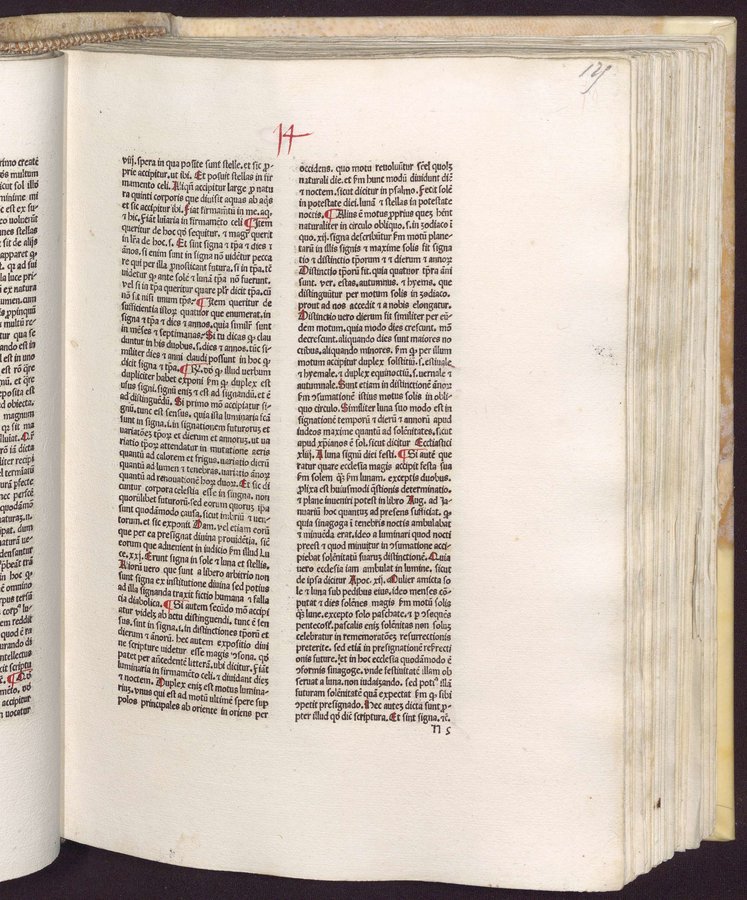 125
14
viij. spera in qua posite sunt stelle. et sic p̱-
prie accipitur. ut ibi. Et posuit stellas in fir
mamento celi. Aliqñ accipitur large ꝓ natu
ra quinti corporis que diuisit aquas ab aq̃s
et sic accipitur ibi. Fiat firmamẽtũ in me. aq.
⁊ hic. Fiãt luiaria in firmamẽto celi ¶ Itẽm
queritur de hoc qð sequitur. ⁊ magr̃ querit
in lr̃a de hoc. s. Et sint signa ⁊ tp̃a ⁊ dies ⁊
ãnos. si enim sunt in signa nõ uidẽtur pecca
re qui per illa ꝓnosticant futura. si in tp̃a. tẽ
uidetur ꝙ ante solẽ ⁊ lunã tp̃a nõ fuerunt.
vel si in tp̃a queritur quare pl̃r dicit tp̃a. cũ
nõ sit nisi unum tp̃s. ¶ Itẽm queritur de
sufficientia istoꝝ quatuor que enumerat. in
signa ⁊ tp̃a ⁊ dies ⁊ annos. quia similr̃ sunt
in mẽses ⁊ septimanas. Si tu dicas ꝙ clau
duntur in his duobus. s. dies ⁊ annos. tũc si-
militer dies ⁊ anni claudi possunt in hoc ꝙ
dicit signa ⁊ tp̃a. ¶ Rñ. dõ ꝙ illud uerbum
dupliciter habet exponi fm̃ ꝙ duplex est
usus signi. signũ enĩz ⁊ est ad signandũ. et ẽ
ad distinguẽdũ. Si primo mõ accipiatur si-
gnũ. tunc est sensus. quia ista luminaria fcã
sunt in signa. i. in signationem futuroruz et
variatões tp̃oꝝ et dierum et annoruz. ut ua
riatio tp̃oꝝ attendatur in mutatione aeris
quantũ ad calorem et frigus. uariatio dierũ
quantũ ad lumen ⁊ tenebras. uariatio ãnoꝝ
quantũ ad renouationẽ hoꝝ duoꝝ. Et sic di
cuntur corpora celestia esse in singna. non
quorũlibet futurorũ. sed eorum quoruz ip̃a
sunt quodãmodo causa. sicut imbriũ ⁊ uen-
torum. et sic exponit Dam. vel etiam eorũ
que per ea presignat diuina prouidẽtia. sic
eorum que aduenient in iudicio fm̃ illud Lu
ce. xxj. Erunt signa in sole ⁊ luna et stellis.
Aliorũ vero que sunt a libero arbitrio non
sunt signa ex institutione diuina sed potius
ad illa signanda traxit fictio humana ⁊ falla
cia diabolica. ¶ Si autem secũdo mõ accipi
atur videlz ab actu distinguendi. tunc ẽ sen
sus. sint in signa. i. in distinctiones tp̃orũ et
dierum ⁊ ãnorũ. hec autem expositio diui
ne scripture uidetur esse magis ꝯsona. qð
patet per ãncedentẽ litterã. ubi dicitur. Fiãt
luminaria in firmamẽto celi. ⁊ diuidant diẽz
⁊ noctem. Duplex enĩz est motus lumina-
riuz. vnus qui est ad motũ ultimẽ spere sup
polos principales ab oriente in oriens per
occidens. quo motu reuoluũtur sẽel quolz
naturali die. et fm̃ hunc modũ diuidunt diẽ
⁊ noctem. sicut dicitur in psalmo. Fecit solẽ
in potestatẽ diei. lunã ⁊ stellas in potestatẽ
noctis. ¶ Alius ẽ motus ꝓprius quez hñt
naturaliter in circulo obliquo. s. in zodiaco ĩ
quo. xij. signa describũtur fm̃ motũ plane-
tarũ in illis signis ⁊ maxime solis fit signa
tio ⁊ distinctio tp̃orum ⁊ ⁊ dierum ⁊ annoꝝ
Distinctio tp̃orũ fit. quia quatuor tp̃ra ãni
sunt. ver. estas. autumnus. ⁊ hyems. que
distinguũtur per motum solis in zodiaco.
prout ad nos accedit ⁊ a nobis elongatur.
Distinctio vero dierum fit similiter per eũ-
dem motum. quia modo dies crescunt. mõ
decrescunt. aliquando dies sunt maiores no
ctibus. aliquando minores. fm̃ ꝙ per illum
motum accipitur duplex solstitiũ. s. estiuale
⁊ hyemale. ⁊ duplex equinoctiũ. s. uernale ⁊
autumnale. Sunt etiam in distinctionẽ ãnoꝝ
fm̃ ꝯsumationẽ istius motus solis in obli-
quo circulo. Similiter luna suo modo est in
signationẽ temporũ ⁊ dierũ ⁊ annorũ apud
iudeos maxime quantũ ad solẽnitates. sicut
apud xp̃ianos ẽ sol. sicut dicitur Ecclĩastici
xliij. A luna signũ diei festi. ¶ Si autẽ que
ratur quare ecclesia magis accipit festa sua
fm̃ solem q̃ fm̃ lunam. exceptis duobus.
ꝓlixa est huiusmodi q̃stionis determinatio.
⁊ plane inueniri potest in libro Aug. ad Ja-
nuariũ hoc quantuz ad presens sufficiat. ꝙ
quia sinagoga ĩ tenebris noctis ambulabat
⁊ minuẽda erat. ideo a luminari quod nocti
preest ⁊ quod minuitur in ꝯsumatione acci-
piebat solẽnitatũ suarũz distinctionẽ. Quia
uero ecclesia iam ambulat in lumine. sicut
de ipsa dicitur Apoc. xij. Mulier amicta so
le ⁊ luna sub pedibus eius. ideo menses cõ-
putat ⁊ dies solẽnes magis fm̃ motũ solis
q̃ lune. excepto solo paschate. ⁊ ꝑ ꝯseq̃ens
pentecosł. pascalis enĩz solẽnitas non soluz
celebratur in rememoratõez resurrectionis
preterite. sed etiã in presignationẽ resurrecti
onis future. ⁊et in hoc ecclesia quodãmodo ẽ
ꝯformis sinagoge. vnde festiuitatẽ illam ob
seruat a luna. non iudaizando. sed poti⁹ illã
futuram solẽnitatẽ quã expectat fm̃ ꝙ sibi
ꝯpetit presignado. Hec autez dicta sunt ꝓ-
pter illud qð dic̃ scriptura. Et sint signa. ⁊c̃.
n 5